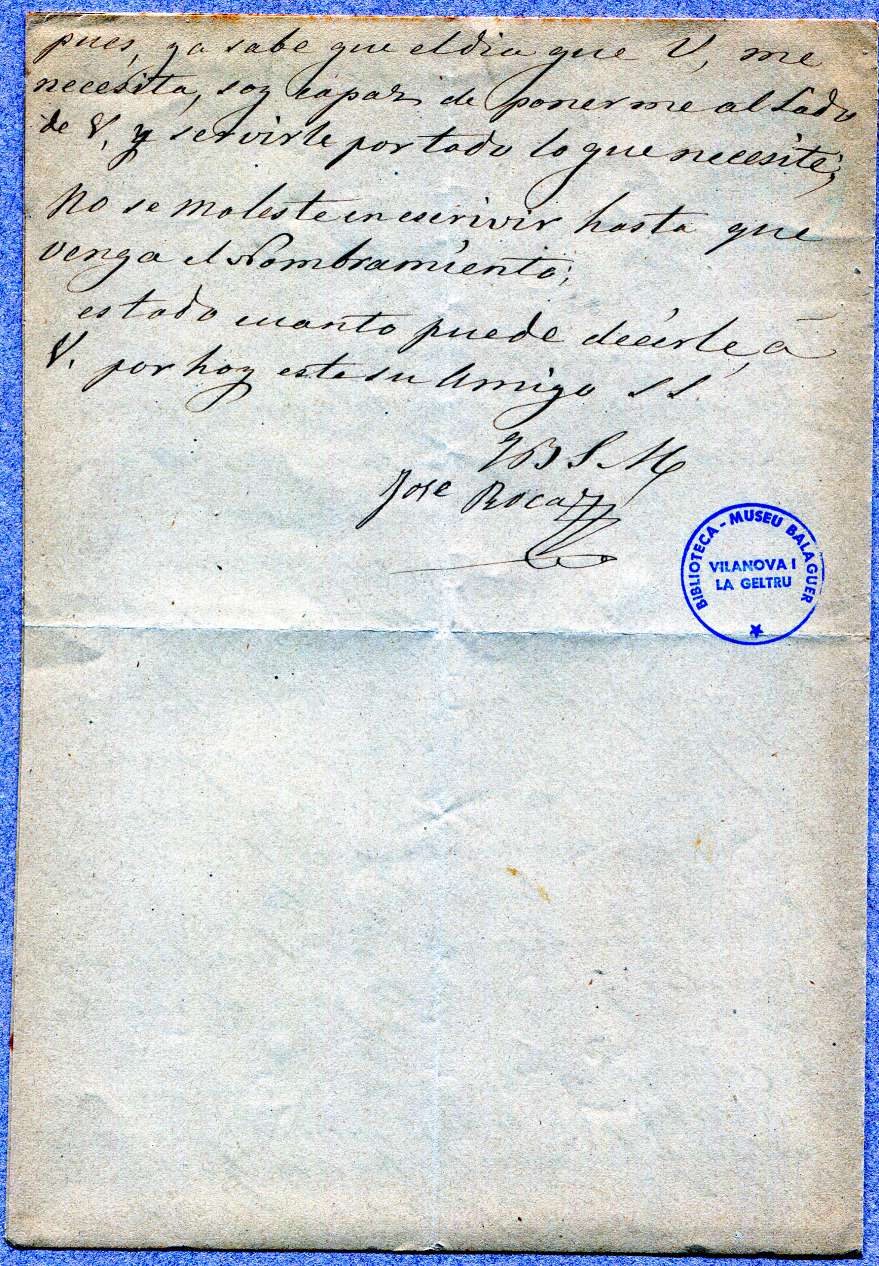 pues, ya sabe que el dia que V, me
necesita, soy capaz de ponerme al lado
de V. y servirle por todo lo que necesite;
No se moleste en escrivir hasta que
venga el Nombramiento;
es todo cuanto puede decirle, á
V. por hoy este su Amigo S S.
Q B S M
Jose Roca
BIBLIOTECA - MUSEU BALAGUER
VILANOVA I
LA GELTRU